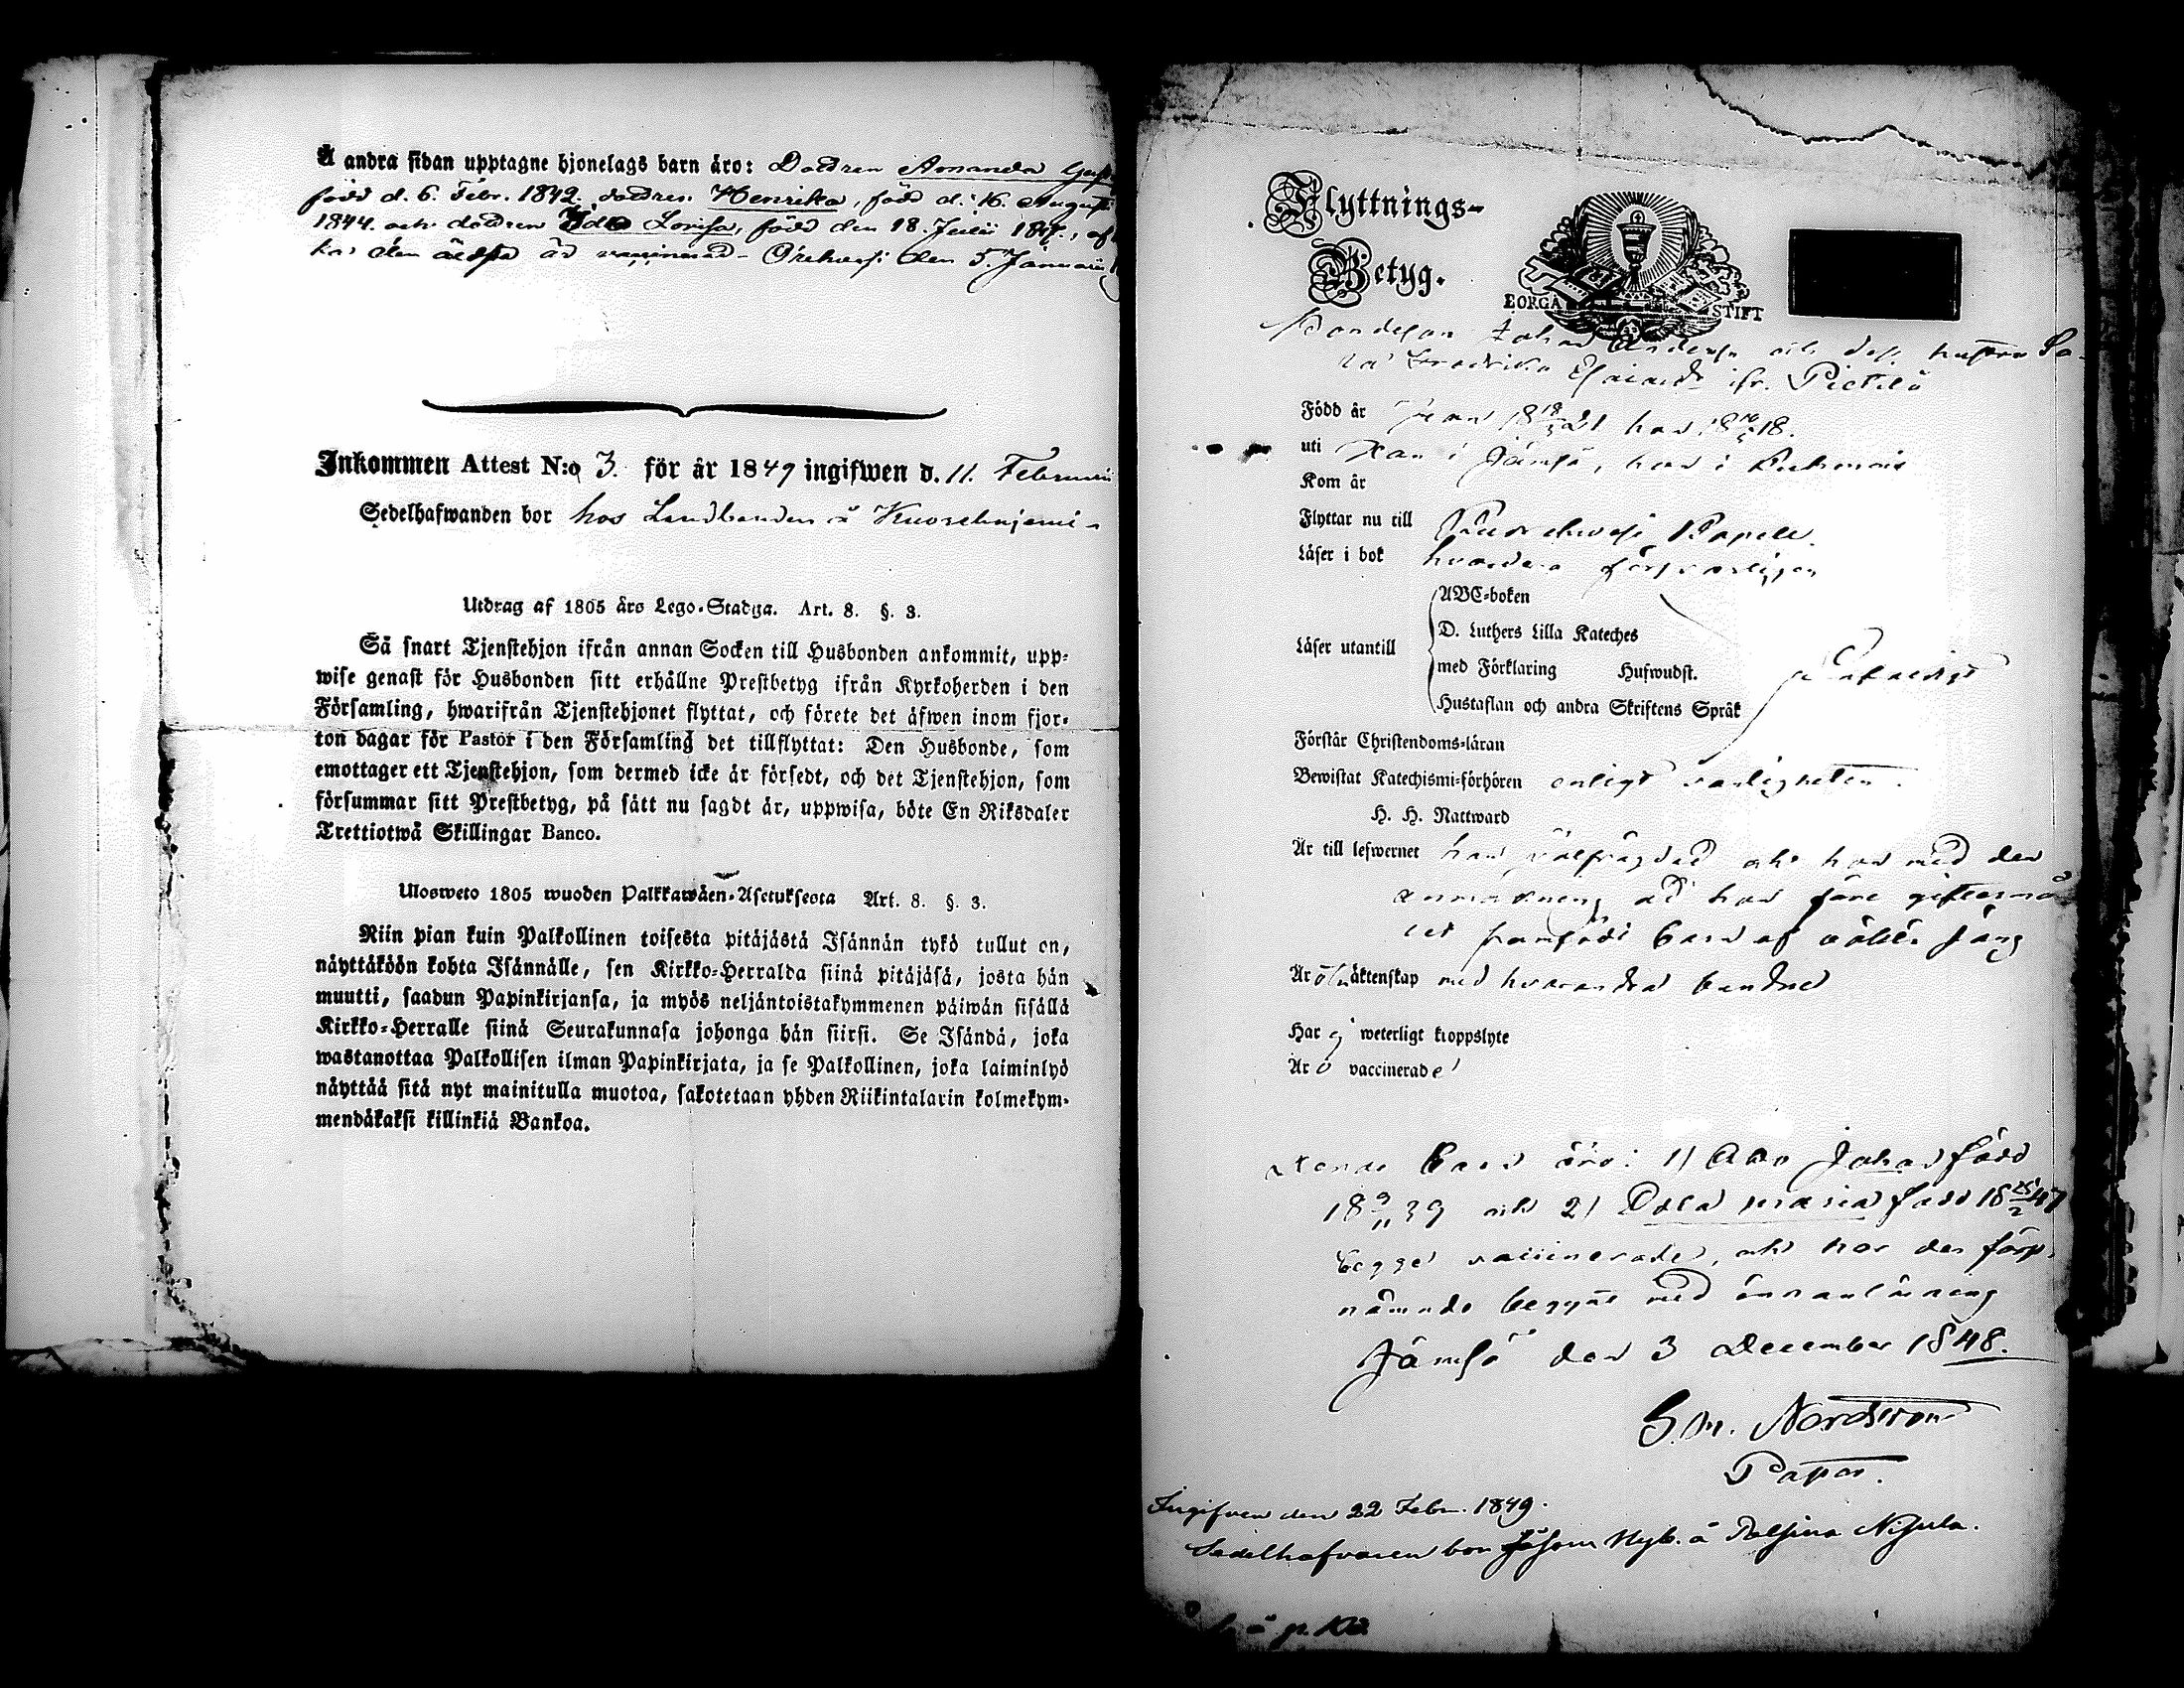 Å andra sidan upptagne hjonelags barn äro: Dottren Amanda
född d. 6. Febr. 1842. dottren Henrika, född d. 16. Augusti
1844. och dottren Ida Lovisa, född den 18. Julii
den äldsta är vaccinerad - Orihvesi den 5. Januarii
Inkommen Attest N:o 3. för år 1849 ingifwen d. 11. Februarii
Sedelhafwanden bor hos Landbonden å
Utdrag af 1805 års Lego-Stadga. Art. 8. §. 3.
Så snart Tjenstehjon ifrån annan Socken till Husbonden ankommit, upp-
wise genast för Husbonden sitt erhållne Prestbetyg ifrån Kyrkoherden i den
Församling, hwarifrån Tjenstehjonet flyttat, och förete det äfwen inom fjor-
ton dagar för Pastor i den Församling det tillflyttat: Den Husbonde, som
emottager ett Tjenstehjon, som dermed icke är försedt, och det Tjenstehjon, som
försummar sitt Prestbetyg, på sätt nu sagdt är, uppwisa, böte En Riksdaler
Trettiotwå Skillingar Banco.
Ulosweto 1805 wuoden Palkkawäen-Asetuksesta Art. 8. §. 3.
Niin pian kuin Palkollinen toisesta pitäjästä Isännän tykö tullut on,
näyttäköön kohta Isännälle, sen Kirkko-Herralda siinä pitäjäsä, josta hän
muutti, saadun Papinkirjansa, ja myös neljäntoistakymmenen päiwän sisällä
Kirkko-Herralle siinä Seurakunnasa johonga hän siirsi. Se Isändä, joka
wastanottaa Palkollisen ilman Papinkirjata, ja se Palkollinen, joka laiminlyö
näyttää sitä nyt mainitulla muotoa, sakotetaan yhden Riikintalarin kolmekym-
mendäkaksi killinkiä Bankoa.
Flyttnings-
Betyg.
BORGÅ STIFT
Bondeson Johan Andersson och dess hustru
Fredrika Esaiasdr ifr. Pietilä
Född år 18 18/3 21 hon 18 16/5 18.
uti Han i Jämsä, hon i Kuhmois
Kom år
Flyttar nu till Ruovehvesi Kapell.
Läser i bok hvardera försvarligen
ABC-boken
D. Luthers Lilla Kateches
Läser utantill
med Förklaring Hufwudst.
Hustaflan och andra Skriftens Språk
Förstår Christendoms-läran
Bewistat Katechismi-förhören enligt vanligheten.
H. H. Nattward
Är till lefwernet han välfrägdad och hon med den
anmärkning att hon före giftermå
let framfödt barn af oäkta säng
Är äktenskap med hvarandra bundne
Har ej weterligt kroppslyte
Är o vaccinerade
barn äro: 1) Johan född
18 9/11 39 och 2) Maria född 18 25/2 47
begge vaccinerade, och har den först
nämnde begynt med innanläsning
Jämsä den 3 December 1848.
S. M. Nordström
Pastor.
Ingifven den 22 Febr. 1849.
Sedelhafvaren bor såsom Nyb. å Palsina Nisula.